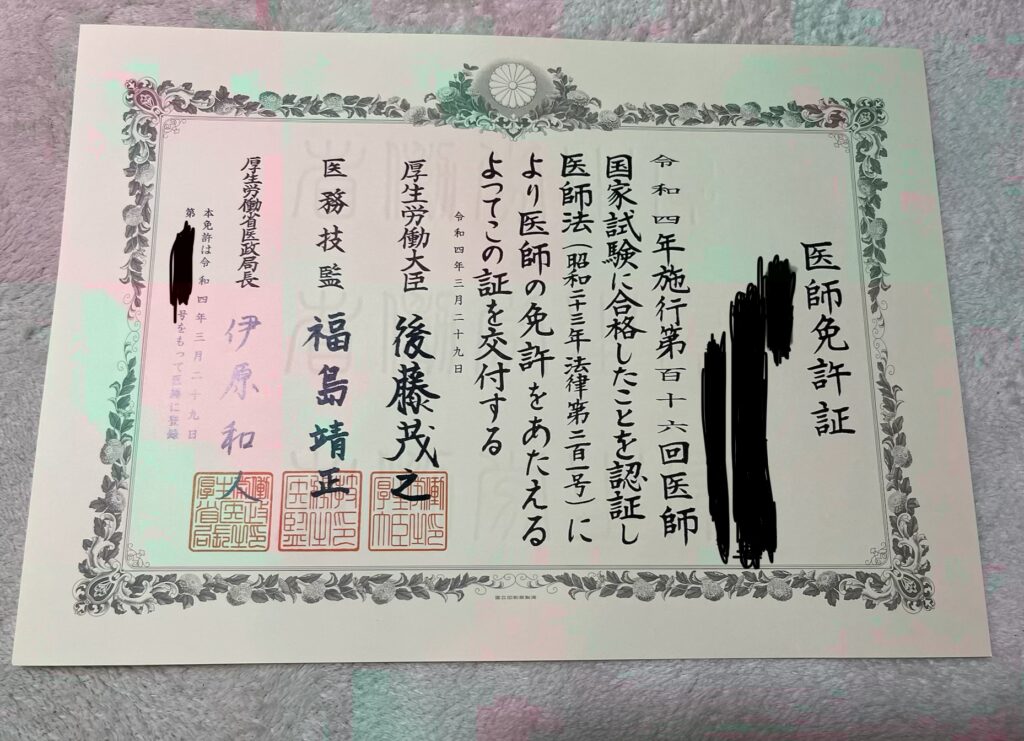 医師免許証
令和四年施行第百十六回医師
国家試験に合格したことを認証し
医師法（昭和二十三年法律第二百一号）に
より医師の免許をあたえる
よつてこの証を交付する
令和四年三月二十九日
厚生労働大臣 後藤茂之
医務技監 福島靖正
厚生労働省医政局長 伊原和人
本免許は令和四年三月二十九日
第
号をもつて医籍に登録